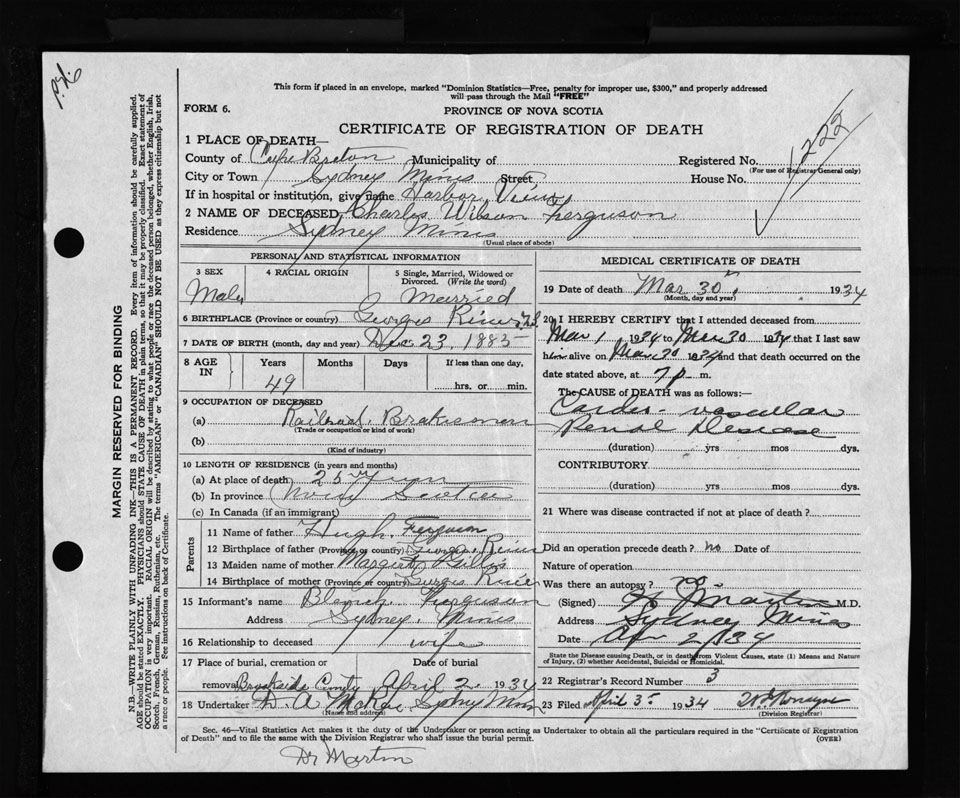 This form if placed in an envelope, marked "Dominion Statistics—Free, penalty for improper use, $300," and properly addressed
will pass through the Mail "FREE"
FORM 6.
PROVINCE OF NOVA SCOTIA
CERTIFICATE OF REGISTRATION OF DEATH
222
1 PLACE OF DEATH—
County of Cape Breton Municipality of Registered No.
(For use of Registrar General only)
City or Town Sydney Mines Street House No.
If in hospital or institution, give name Harbor View
2 NAME OF DECEASED Charles Wilson Ferguson
Residence Sydney Mines
(Usual place of abode)
PERSONAL AND STATISTICAL INFORMATION
3 SEX 4 RACIAL ORIGIN 5 Single, Married, Widowed or
Divorced. (Write the word)
Male Married
6 BIRTHPLACE (Province or country) Georges River N.S.
7 DATE OF BIRTH (month, day and year) Dec 23, 1885
8 AGE IN Years Months Days If less than one day,
49 hrs. or min.
9 OCCUPATION OF DECEASED
(a) Railroad Brakesman
(Trade or occupation or kind of work)
(b)
(Kind of industry)
10 LENGTH OF RESIDENCE (in years and months)
(a) At place of death 25
(b) In province Nova Scotia
(c) In Canada (if an immigrant)
Parents
11 Name of father Hugh Ferguson
12 Birthplace of father (Province or country) Georges River
13 Maiden name of mother Gillis
14 Birthplace of mother (Province or country) Georges River
15 Informant's name Ferguson
Address Sydney Mines
16 Relationship to deceased wife
17 Place of burial, cremation or Date of burial
removal Brookside April 2 1934
18 Undertaker Sydney Mines
(Name and address)
MEDICAL CERTIFICATE OF DEATH
19 Date of death Mar 30 1934
(Month, day and year)
20 I HEREBY CERTIFY that I attended deceased from
Mar 1 1934 to Mar 30 1934 that I last saw
h alive on Mar 30 1934 and that death occurred on
date stated above, at 7 p m.
The CAUSE of DEATH was as follows:—
Cardio-vascular
Renal Disease
(duration) yrs mos dys.
CONTRIBUTORY
(duration) yrs mos dys.
21 Where was disease contracted if not at place of death?
Did an operation precede death? no Date of
Nature of operation
Was there an autopsy? no
(Signed) Martin M.D.
Address Sydney Mines
Date Apr 2/34
State the Disease causing Death, or in death from Violent Causes, state (1) Means and Nature
of Injury, (2) whether Accidental, Suicidal or Homicidal.
22 Registrar's Record Number 3
23 Filed April 3 1934
(Division Registrar)
Sec. 46—Vital Statistics Act makes it the duty of the Undertaker or person acting as Undertaker to obtain all the particulars required in the "Certificate of Registration
of Death" and to file the same with the Division Registrar who shall issue the burial permit.
(OVER)
Dr Martin
MARGIN RESERVED FOR BINDING
N.B.—WRITE PLAINLY WITH UNFADING INK—THIS IS A PERMANENT RECORD. Every item of information should be carefully supplied.
AGE should be stated EXACTLY. PHYSICIANS should STATE CAUSE OF DEATH in plain terms, so that it may be properly classified. Exact statement of
OCCUPATION is very important. RACIAL ORIGIN will be described by stating to what people or race the deceased person belonged, whether English, Irish,
Scotch, French, German, Russian, Ruthenian, etc. The terms "AMERICAN" or "CANADIAN" SHOULD NOT BE USED as they express citizenship but not
a race or people. See instructions on back of Certificate.